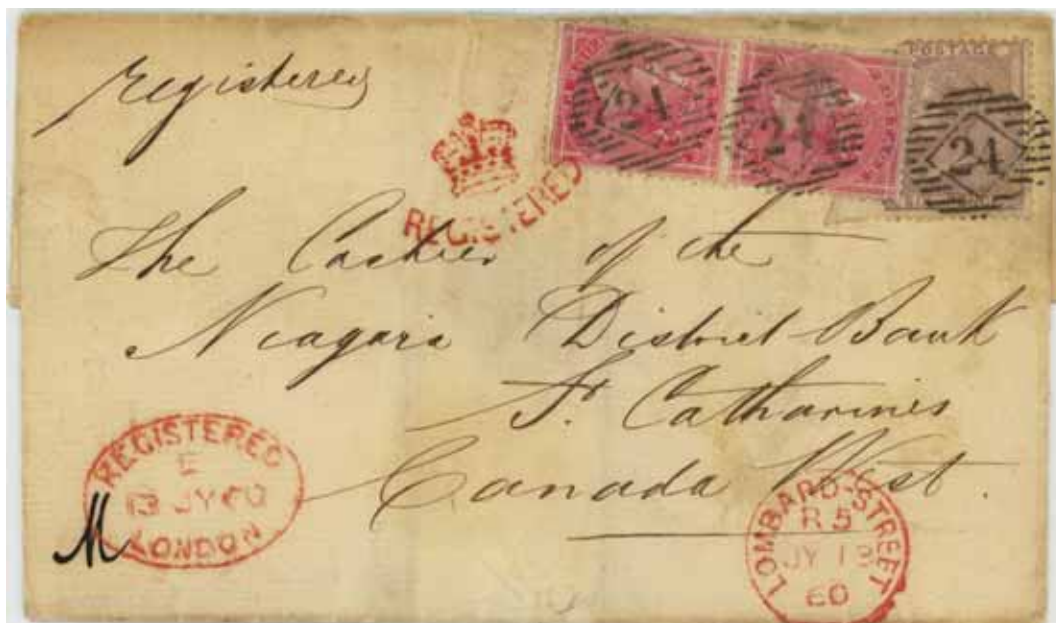 Registered
POSTAGE
24
24
24
REGISTERED
The Cashier of the
Niagara District Bank
St. Catharines
Canada West.
REGISTERED
E
13 JY 60
LONDON
M
LOMBARD-STREET
R 5
JY 13
60